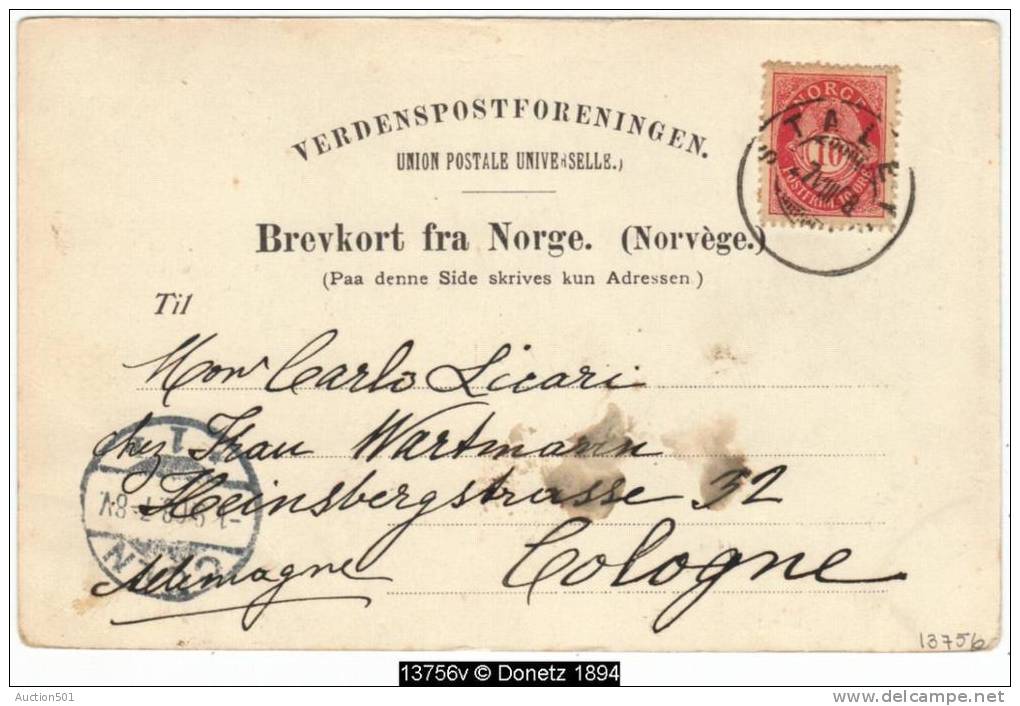 VERDENSPOSTFORENINGEN.
UNION POSTALE UNIVERSELLE.)
Brevkort fra Norge. (Norvège.)
(Paa denne Side skrives kun Adressen.)
NORGE
10
POSTFRIM. 10 ØRE
STALE
Til
Monr Carlo Licari
chez Frau Wartmann
Heinsbergstrasse 32
Cologne
Allemagne
13756
13756v © Donetz 1894
Auction501
www.delcampe.net